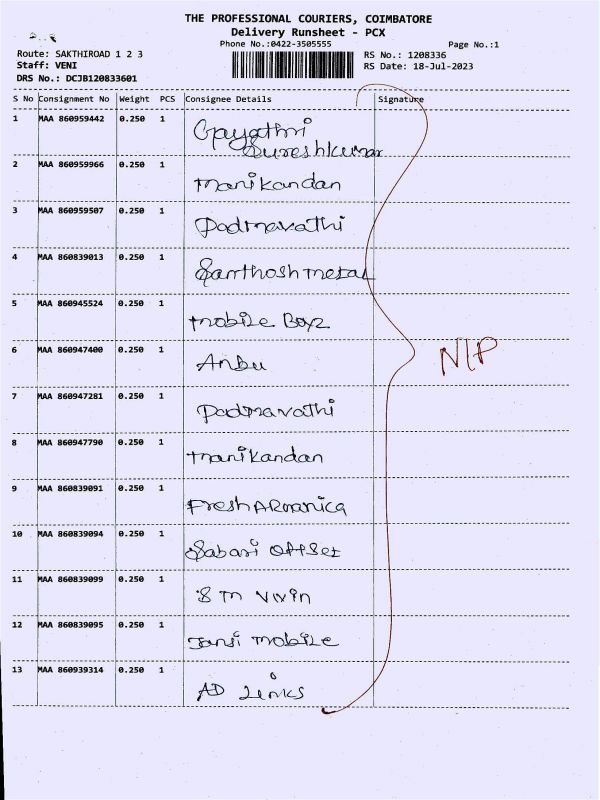 THE PROFESSIONAL COURIERS, COIMBATORE
Delivery Runsheet - PCX
Phone No.:0422-3505555 Page No.:1
Route: SAKTHIROAD 1 2 3 RS No.: 1208336
Staff: VENI RS Date: 18-Jul-2023
DRS No.: DCJB120833601
S No Consignment No Weight PCS Consignee Details Signature
1 MAA 860959442 0.250 1 Gayathri
Sureshkumar
2 MAA 860959966 0.250 1 Manikandan
3 MAA 860959507 0.250 1 Padmavathi
4 MAA 860839013 0.250 1 Santhosh metal
5 MAA 860945524 0.250 1 mobile Boyz
6 MAA 860947400 0.250 1 Anbu
N/P
7 MAA 860947281 0.250 1 Padmavathi
8 MAA 860947790 0.250 1 Manikandan
9 MAA 860839091 0.250 1 Fresh
10 MAA 860839094 0.250 1 Sabari Offset
11 MAA 860839099 0.250 1 S M Vivin
12 MAA 860839095 0.250 1 Jansi mobile
13 MAA 860939314 0.250 1 AD Links